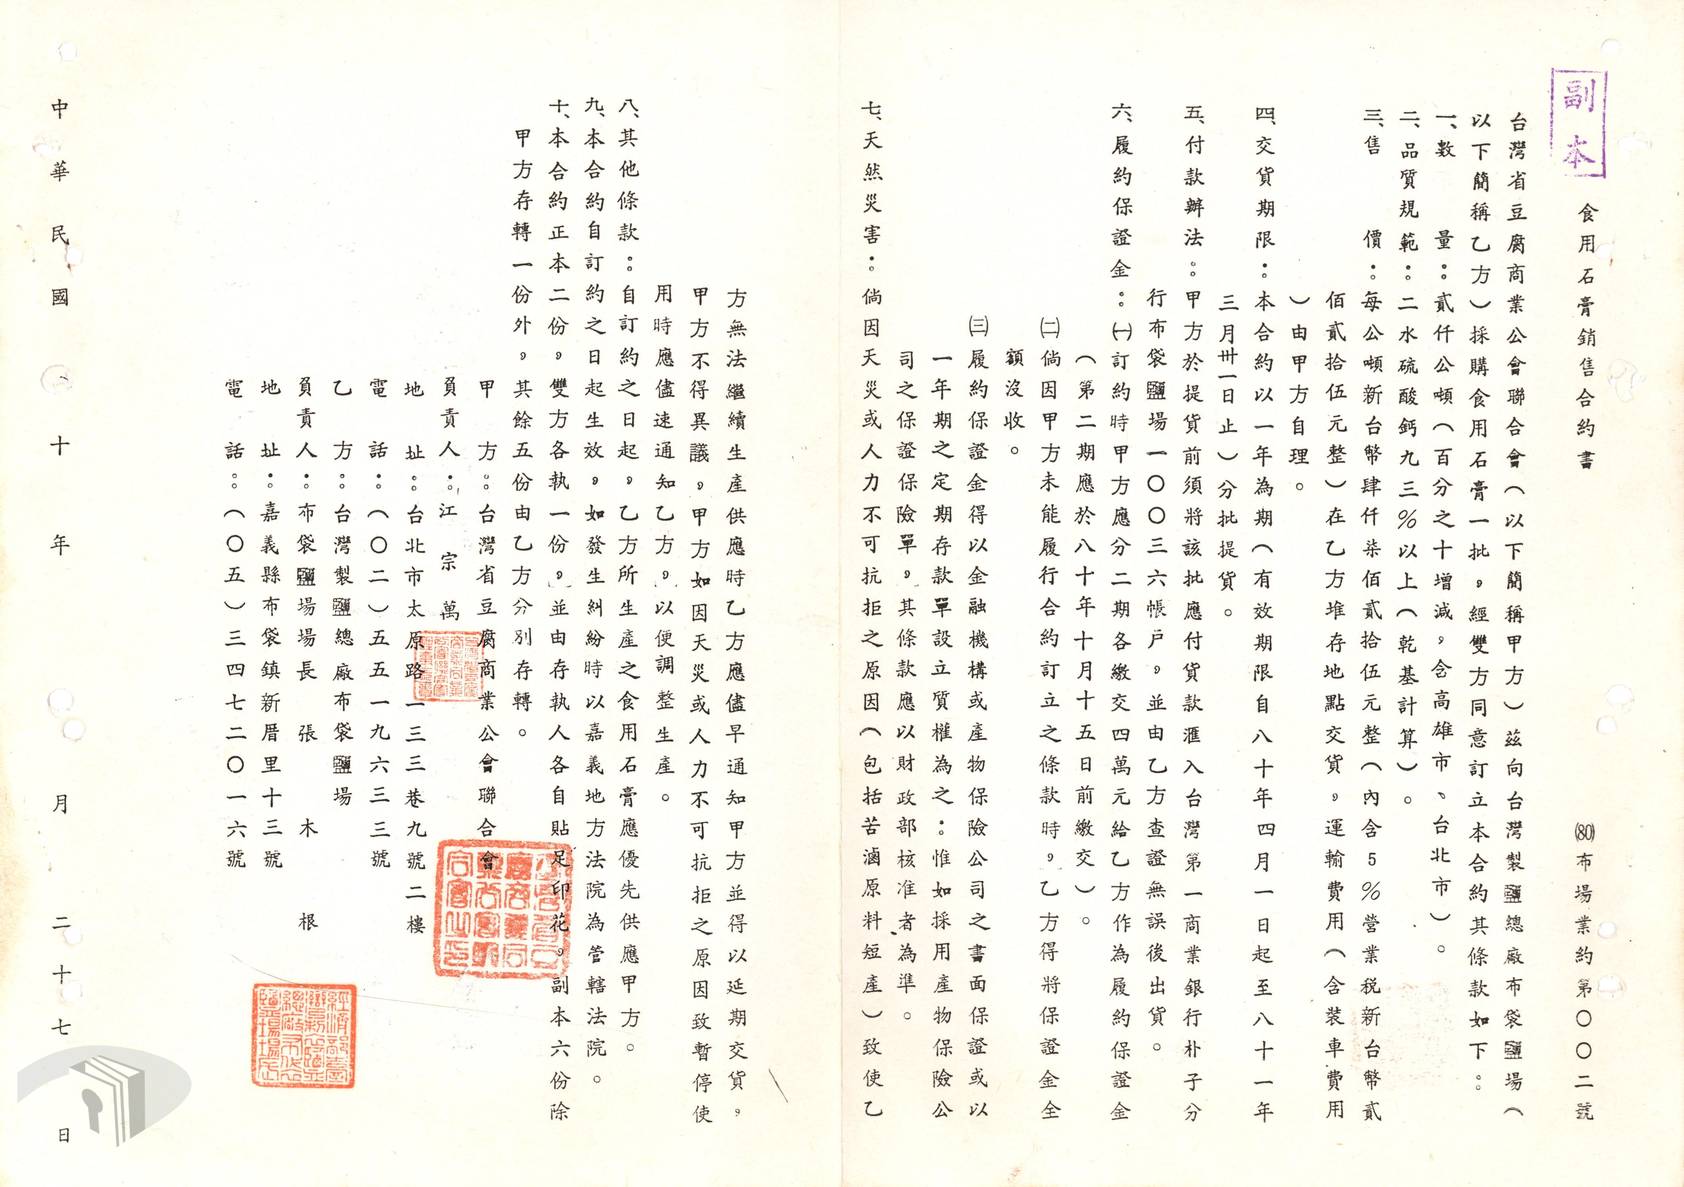 副本
食用石膏銷售合約書
(80)布場業約第〇〇二號
台灣省豆腐商業公會聯合會（以下簡稱甲方）茲向台灣製鹽總廠布袋鹽場（
以下簡稱乙方）採購食用石膏一批，經雙方同意訂立本合約其條款如下：
一、數　　量：貳仟公噸（百分之十增減，含高雄市、台北市）。
二、品質規範：二水硫酸鈣九三%以上（乾基計算）。
三、售　　價：每公噸新台幣肆仟柒佰貳拾伍元整（內含5%營業稅新台幣貳
佰貳拾伍元整）在乙方堆存地點交貨，運輸費用（含裝車費用
）由甲方自理。
四、交貨期限：本合約以一年為期（有效期限自八十年四月一日起至八十一年
三月卅一日止）分批提貨。
五、付款辦法：甲方於提貨前須將該批應付貨款滙入台灣第一商業銀行朴子分
行布袋鹽場一〇〇三六帳戶，並由乙方查證無誤後出貨。
六、履約保證金：㈠訂約時甲方應分二期各繳交四萬元給乙方作為履約保證金
（第二期應於八十年十月十五日前繳交）。
㈡倘因甲方未能履行合約訂立之條款時，乙方得將保證金全
額沒收。
㈢履約保證金得以金融機構或產物保險公司之書面保證或以
一年期之定期存款單設立質權為之：惟如採用產物保險公
司之保證保險單，其條款應以財政部核准者為準。
七、天然災害：倘因天災或人力不可抗拒之原因（包括苦滷原料短產）致使乙
方無法繼續生產供應時乙方應儘早通知甲方並得以延期交貨，
甲方不得異議，甲方如因天災或人力不可抗拒之原因致暫停使
用時應儘速通知乙方，以便調整生產。
八、其他條款：自訂約之日起，乙方所生產之食用石膏應優先供應甲方。
九、本合約自訂約之日起生效，如發生糾紛時以嘉義地方法院為管轄法院。
十、本合約正本二份，雙方各執一份，並由存執人各自貼足印花，副本六份除
甲方存轉一份外，其餘五份由乙方分別存轉。
甲　　方：台灣省豆腐商業公會聯合會
負責人：江宗萬
地　　址：台北市太原路一三三巷九號二樓
電　　話：（〇二）五五一九六三三號
乙　　方：台灣製鹽總廠布袋鹽場
負責人：布袋鹽場場長　張木根
地　　址：嘉義縣布袋鎮新厝里十三號
電　　話：（〇五）三四七二〇一六號
中華民國八十年　月二十七日